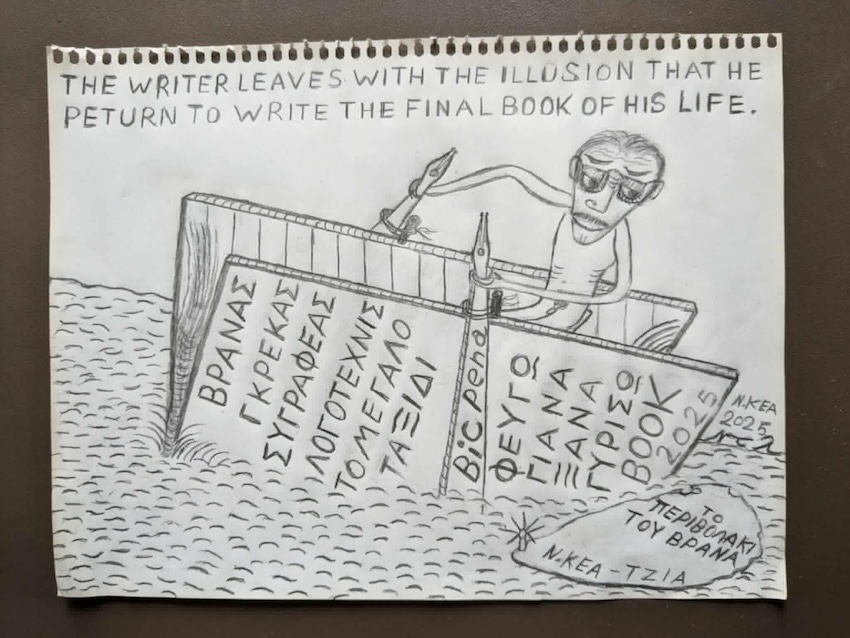 THE WRITER LEAVES WITH THE ILLUSION THAT HE
PETURN TO WRITE THE FINAL BOOK OF HIS LIFE.
ΒΡΑΝΑΣ
ΓΚΡΕΚΑΣ
ΣΥΓΡΑΦΕΑΣ
ΛΟΓΟΤΕΧΝΙΣ
ΤΟ ΜΕΓΑΛΟ
ΤΑΞΙΔΙ
BiC Pena
ΦΕΥΓΩ
ΓΙΑ ΝΑ
ΞΑΝΑ
ΓΥΡΙΣΩ
BOOK
2025
N.KEA
2025
ΤΟ
ΠΕΡΙΒΟΛΑΚΙ
ΤΟΥ ΒΡΑΝΑ
N.KEA - TZIA